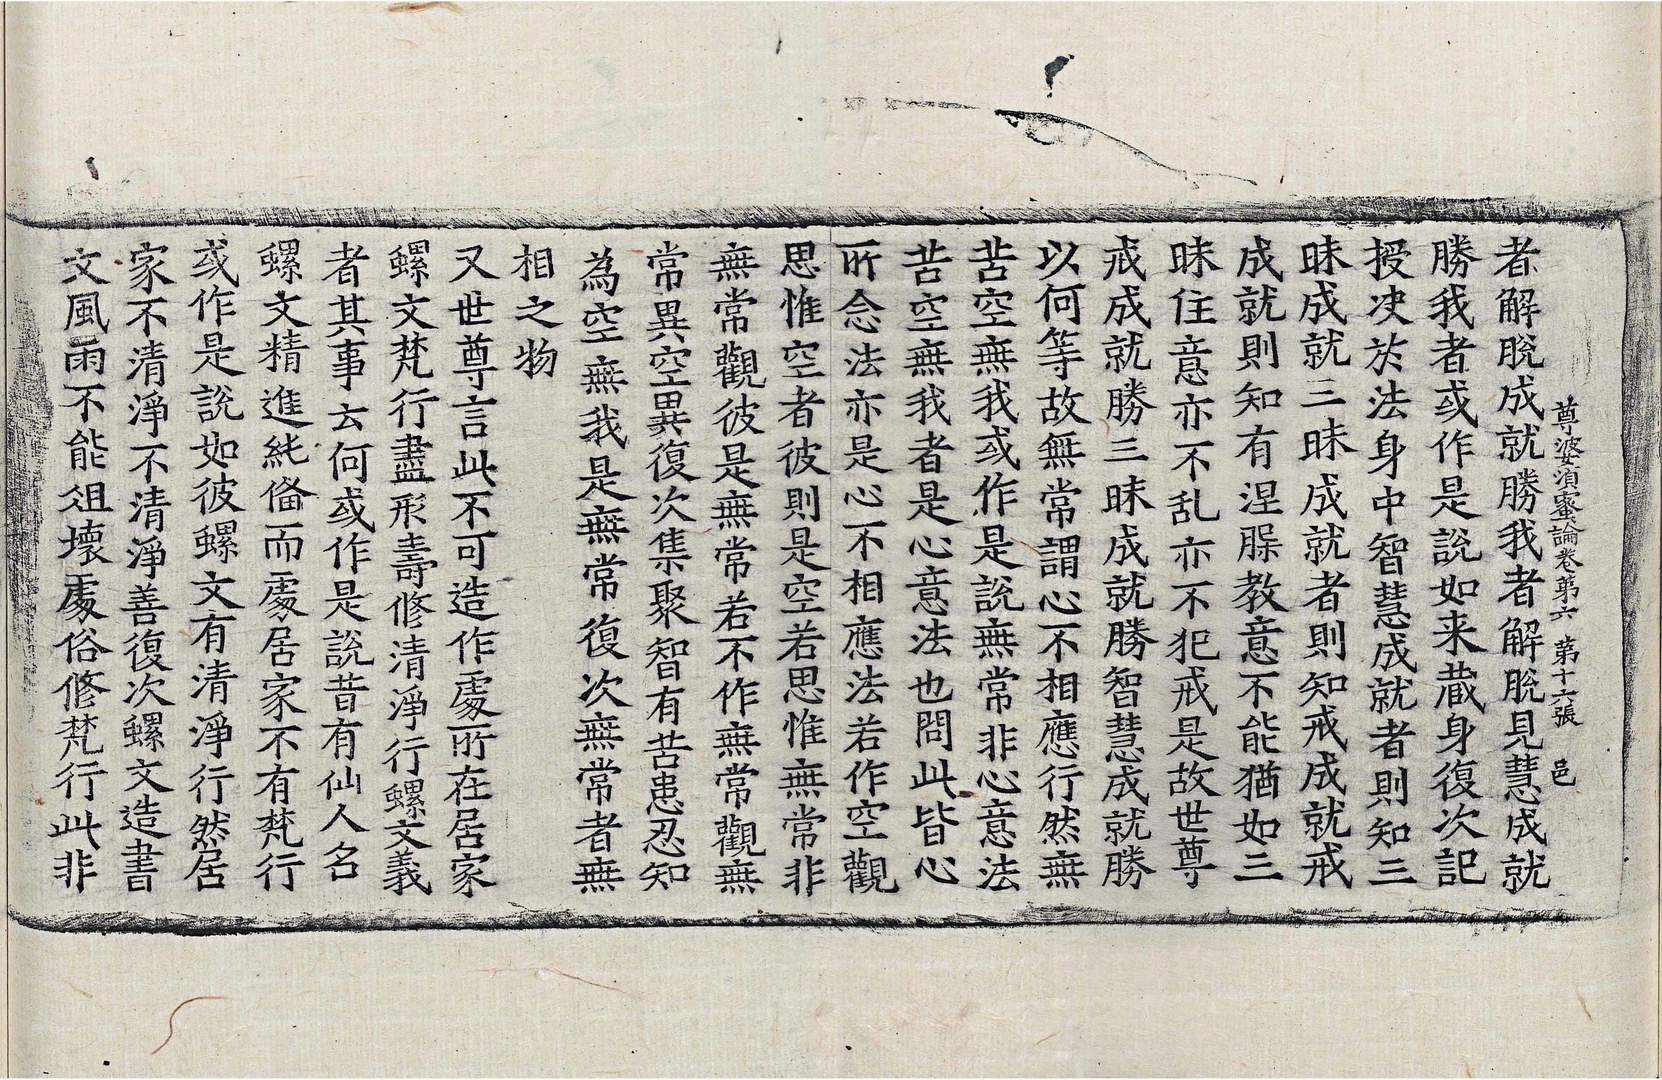 尊婆湏蜜論卷第六 第十六張 邑
者解脫成就勝我者解脫見慧成就
勝我者或作是說如来藏身復次記
授决於法身中智慧成就者則知三
昧成就三昧成就者則知戒成就戒
成就則知有涅槃教意不能猶如三
昧住意亦不乱亦不犯戒是故世尊
戒成就勝三昧成就勝智慧成就勝
以何等故無常謂心不相應行然無
苦空無我或作是說無常非心意法
苦空無我者是心意法也問此皆心
所念法亦是心不相應法若作空觀
思惟空者彼則是空若思惟無常非
無常觀彼是無常若不作無常觀無
常異空異復次集聚智有苦患忍知
為空無我是無常復次無常者無
相之物
又世尊言此不可造作處所在居家
螺文梵行盡形壽修清淨行螺文義
者其事云何或作是說昔有仙人名
螺文精進純備而處居家不有梵行
或作是說如彼螺文有清淨行然居
家不清淨不清淨善復次螺文造書
文風雨不能俎壞處俗修梵行此非